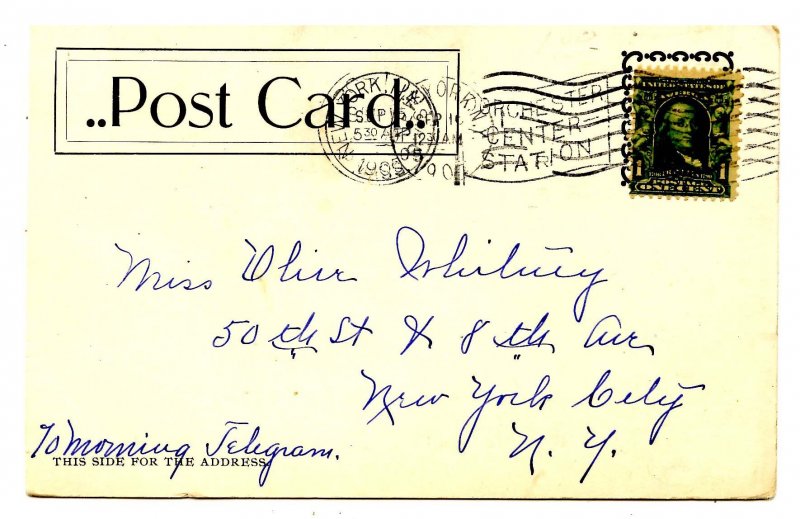 ..Post Card..
NEW YORK, N.Y.
SEP 16
5 30 A
1905
12 30 AM
ORCHESTER
CENTER
STATION
UNITED STATES OF
POSTAGE
1 ONE CENT 1
Miss Olive Whitney
50th St & 8th Ave
New York City
N. Y.
To Morning Telegram.
THIS SIDE FOR THE ADDRESS.